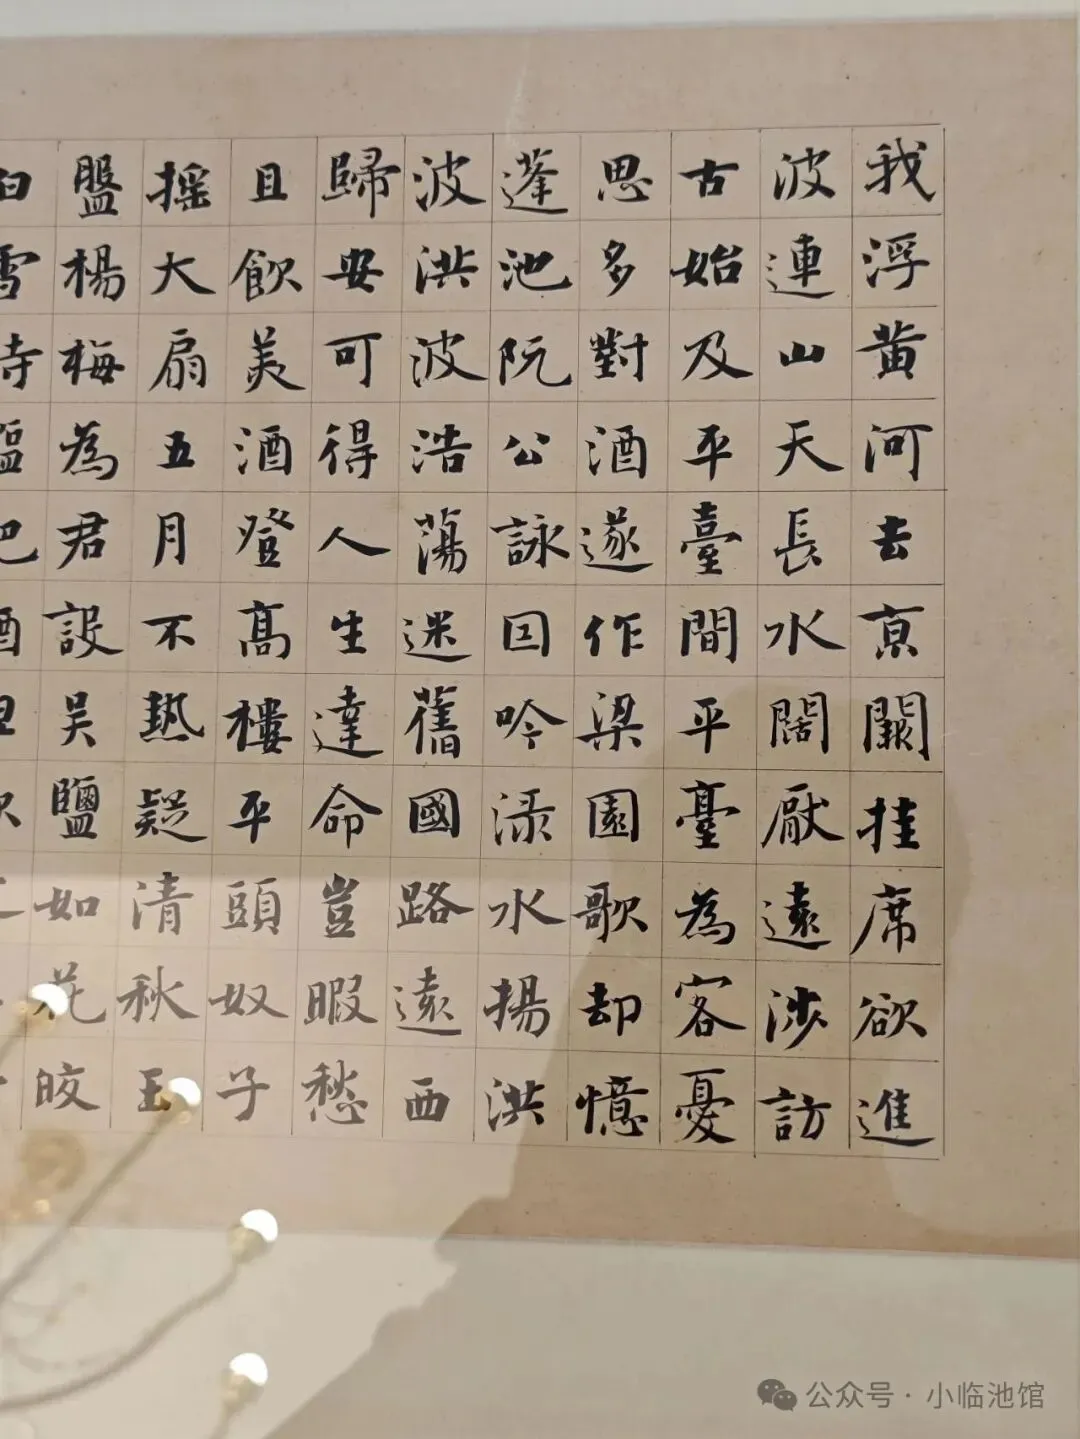 我浮黄河去亰闕挂席欲進
波連山天長水闊厭遠涉訪
古始及平臺間平臺為客憂
思多對酒遂作梁園歌却憶
蓬池阮公詠囙吟渌水揚洪
波洪波浩蕩迷舊國路遠西
歸安可得人生達命豈暇愁
且飲美酒登高樓平頭奴子
摇大扇五月不熱疑清秋玉
盤楊梅為君設吴鹽如花皎
白雪持鹽把酒但飲
公众号·小临池馆